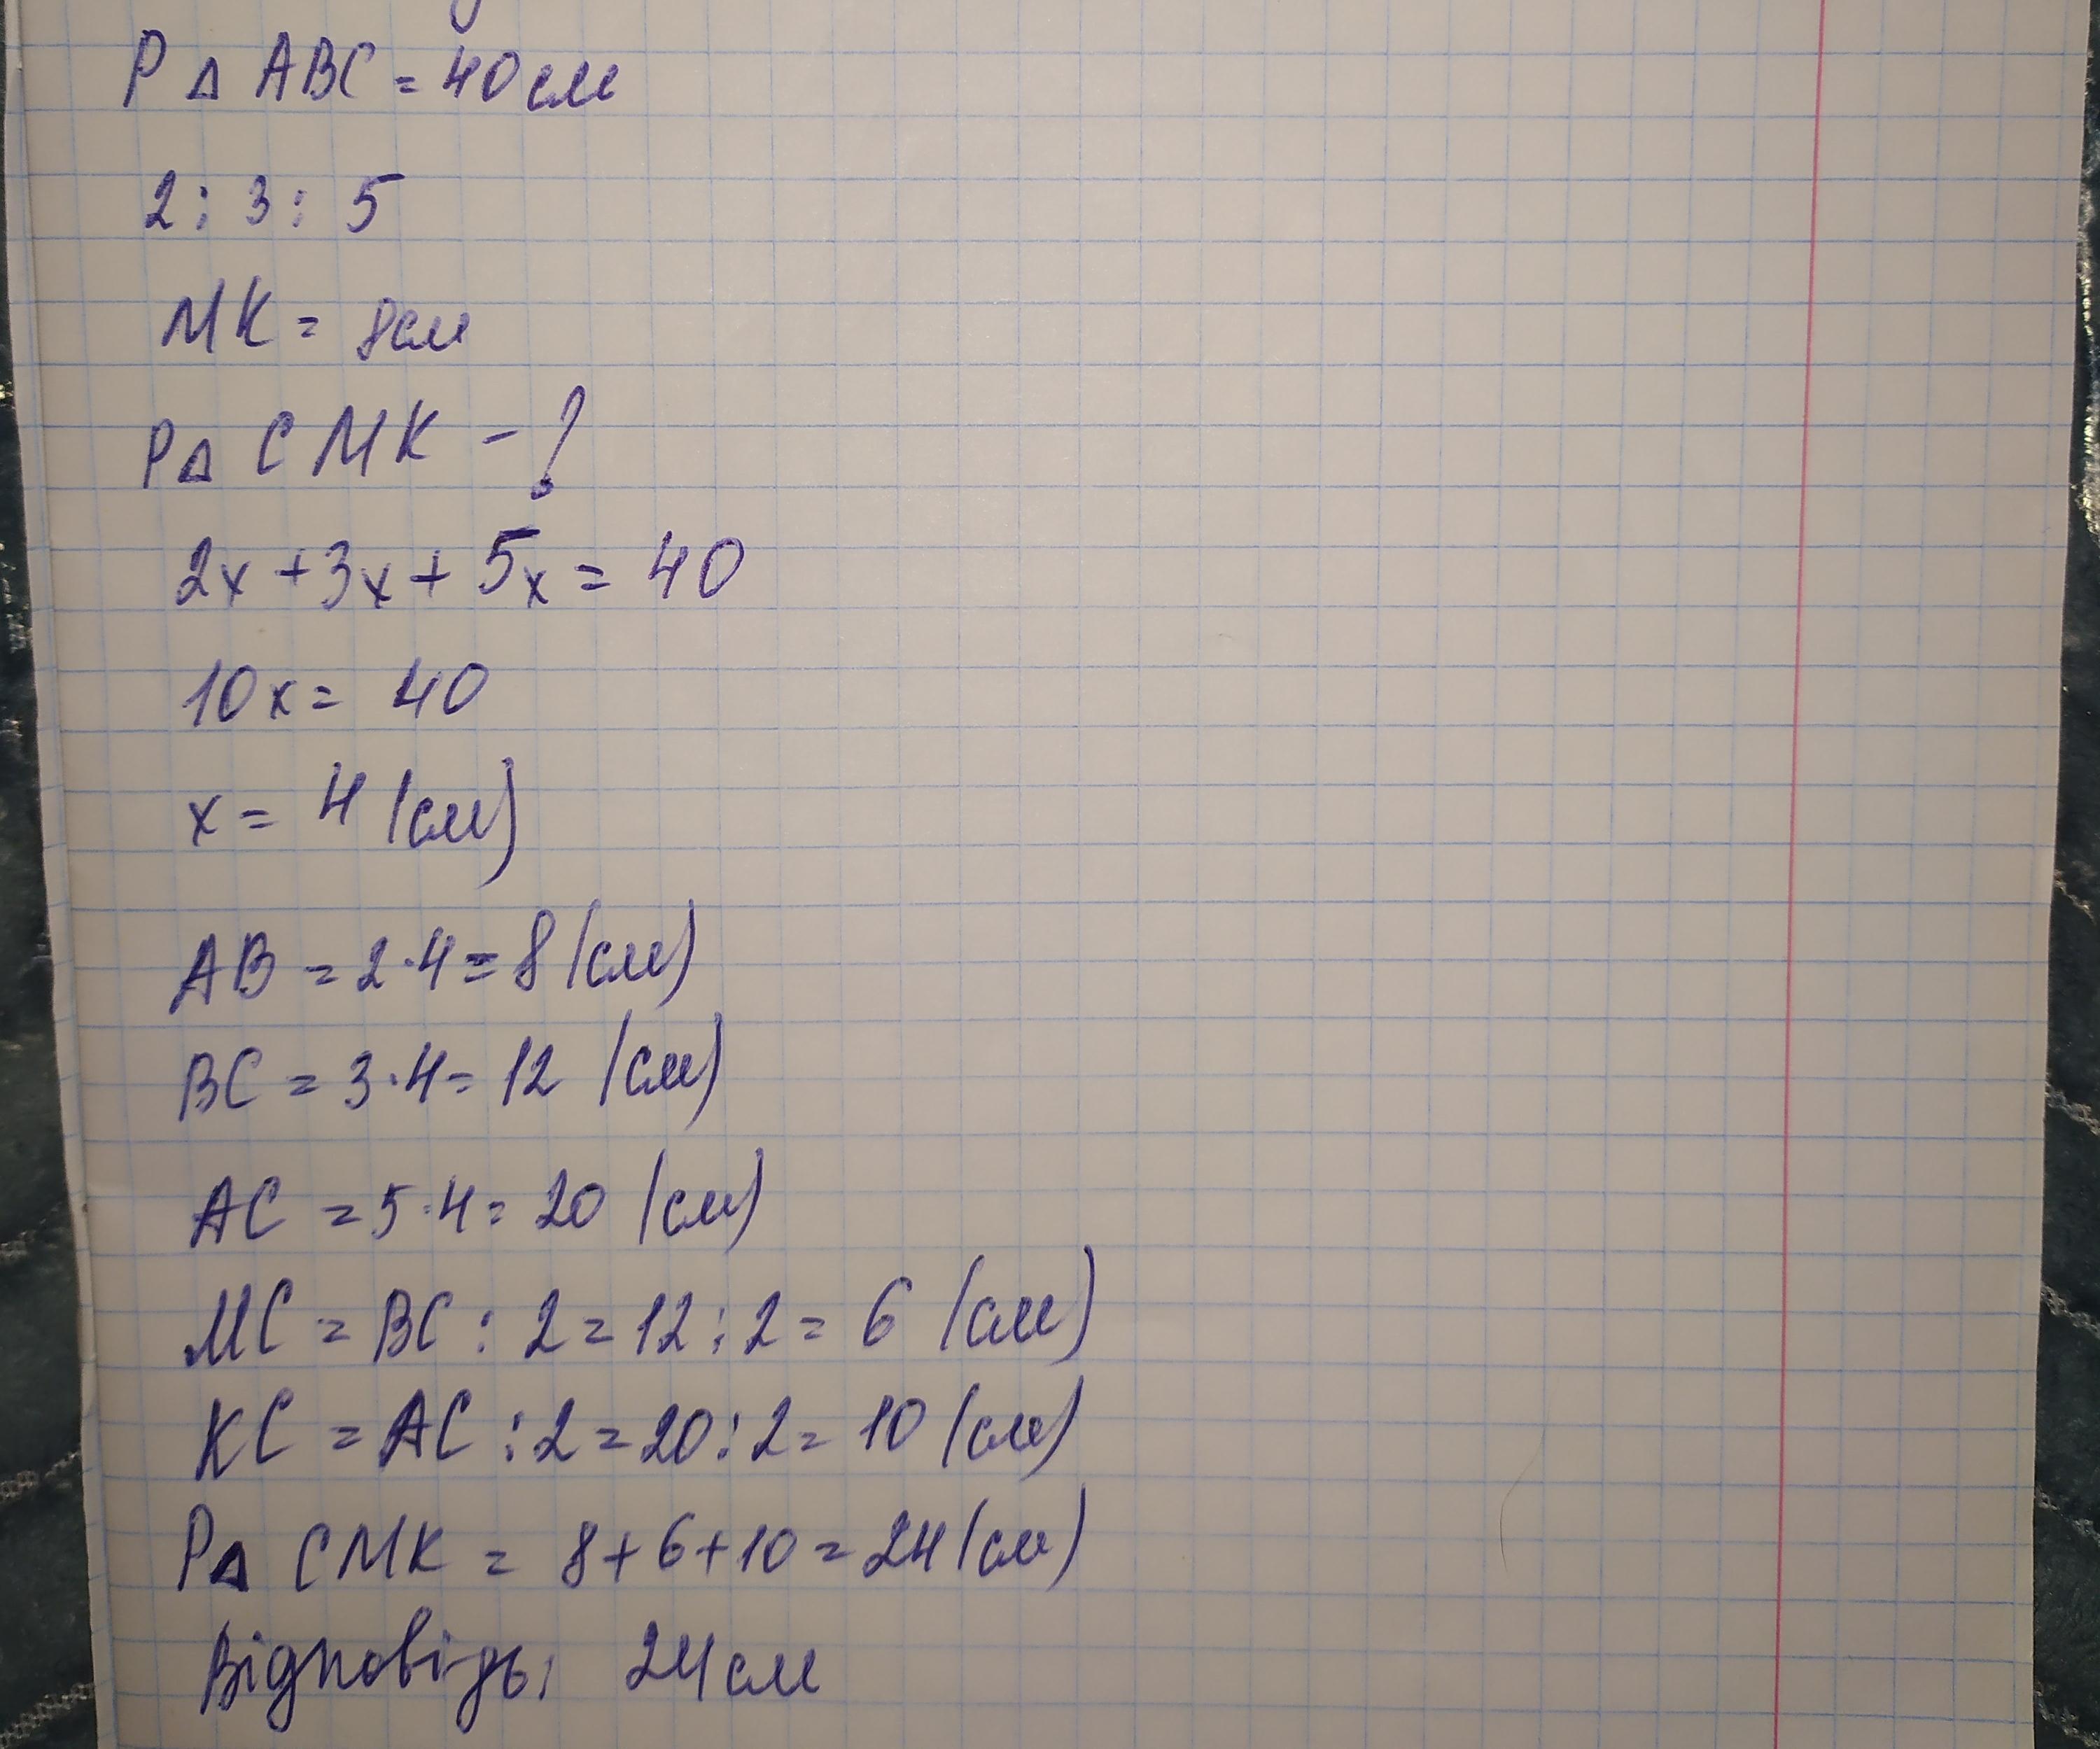 P Δ ABC = 40 см
2 : 3 : 5
MK = 8 см
P Δ CMK - ?
2x + 3x + 5x = 40
10x = 40
x = 4 (см)
AB = 2 · 4 = 8 (см)
BC = 3 · 4 = 12 (см)
AC = 5 · 4 = 20 (см)
MC = BC : 2 = 12 : 2 = 6 (см)
KC = AC : 2 = 20 : 2 = 10 (см)
P Δ CMK = 8 + 6 + 10 = 24 (см)
Відповідь: 24 см